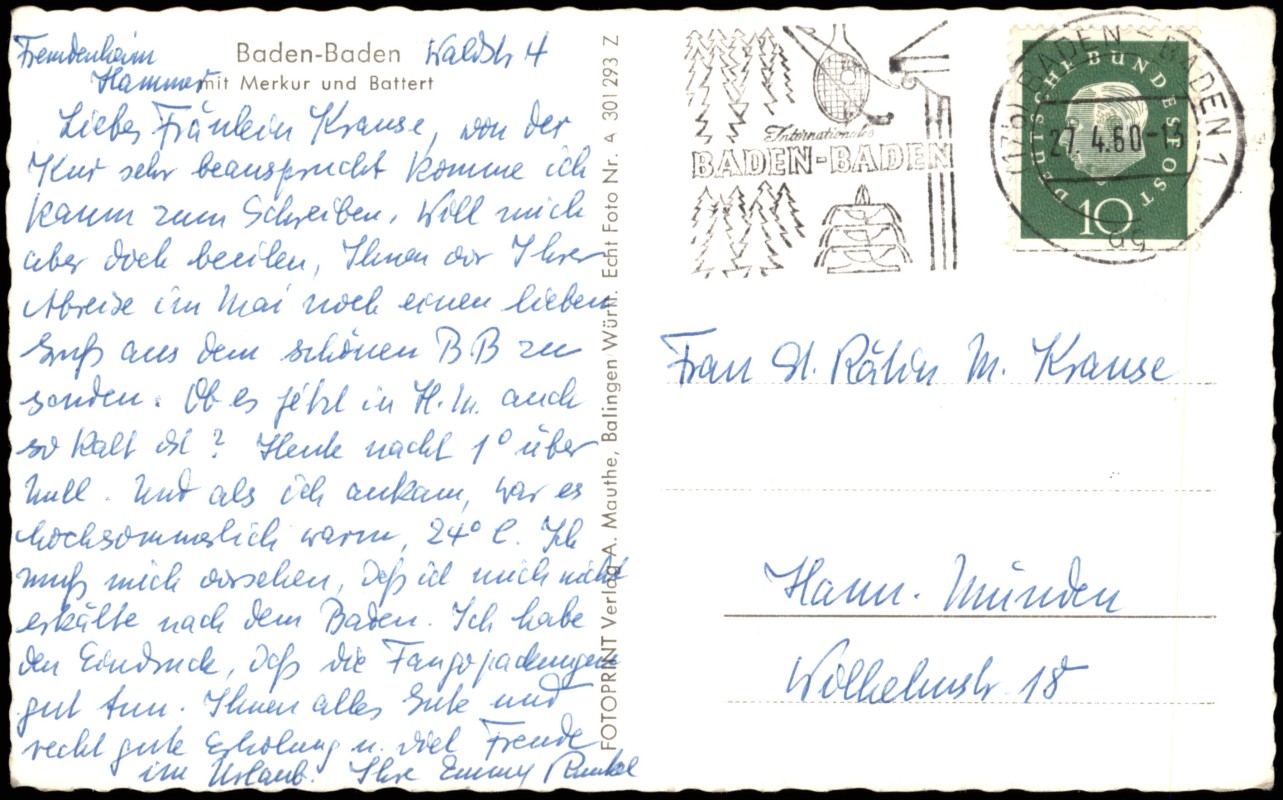 Fremdenheim
Hammer
Waldstr 4
Baden-Baden
mit Merkur und Battert
Liebes Fräulein Krause, von der
Kur sehr beansprucht komme ich
kaum zum Schreiben. Will mich
aber doch beeilen, Ihnen vor Ihrer
Abreise im Mai noch einen lieben
Gruß aus dem schönen BB zu
senden. Ob es jetzt in H. M. auch
so kalt ist? Heute nacht 1° über
Null. Und als ich ankam, war es
hochsommerlich warm, 24° C. Ich
muß mich vorsehen, daß ich mich nicht
erkälte nach dem Baden. Ich habe
den Eindruck, daß die Fangopackungen
gut tun. Ihnen alles Gute und
recht gute Erholung u. viel Freude
im Urlaub. Ihre Emmy Runkel
FOTOPRINT Verlag A. Mauthe, Balingen Württ. Echt Foto Nr. A 301 293 Z
Internationales
BADEN-BADEN
(17b) BADEN-BADEN 1
27.4.60-13
DEUTSCHE BUNDESPOST
10
Frau St. Rätin M. Krause
Hann. Münden
Wilhelmstr. 18